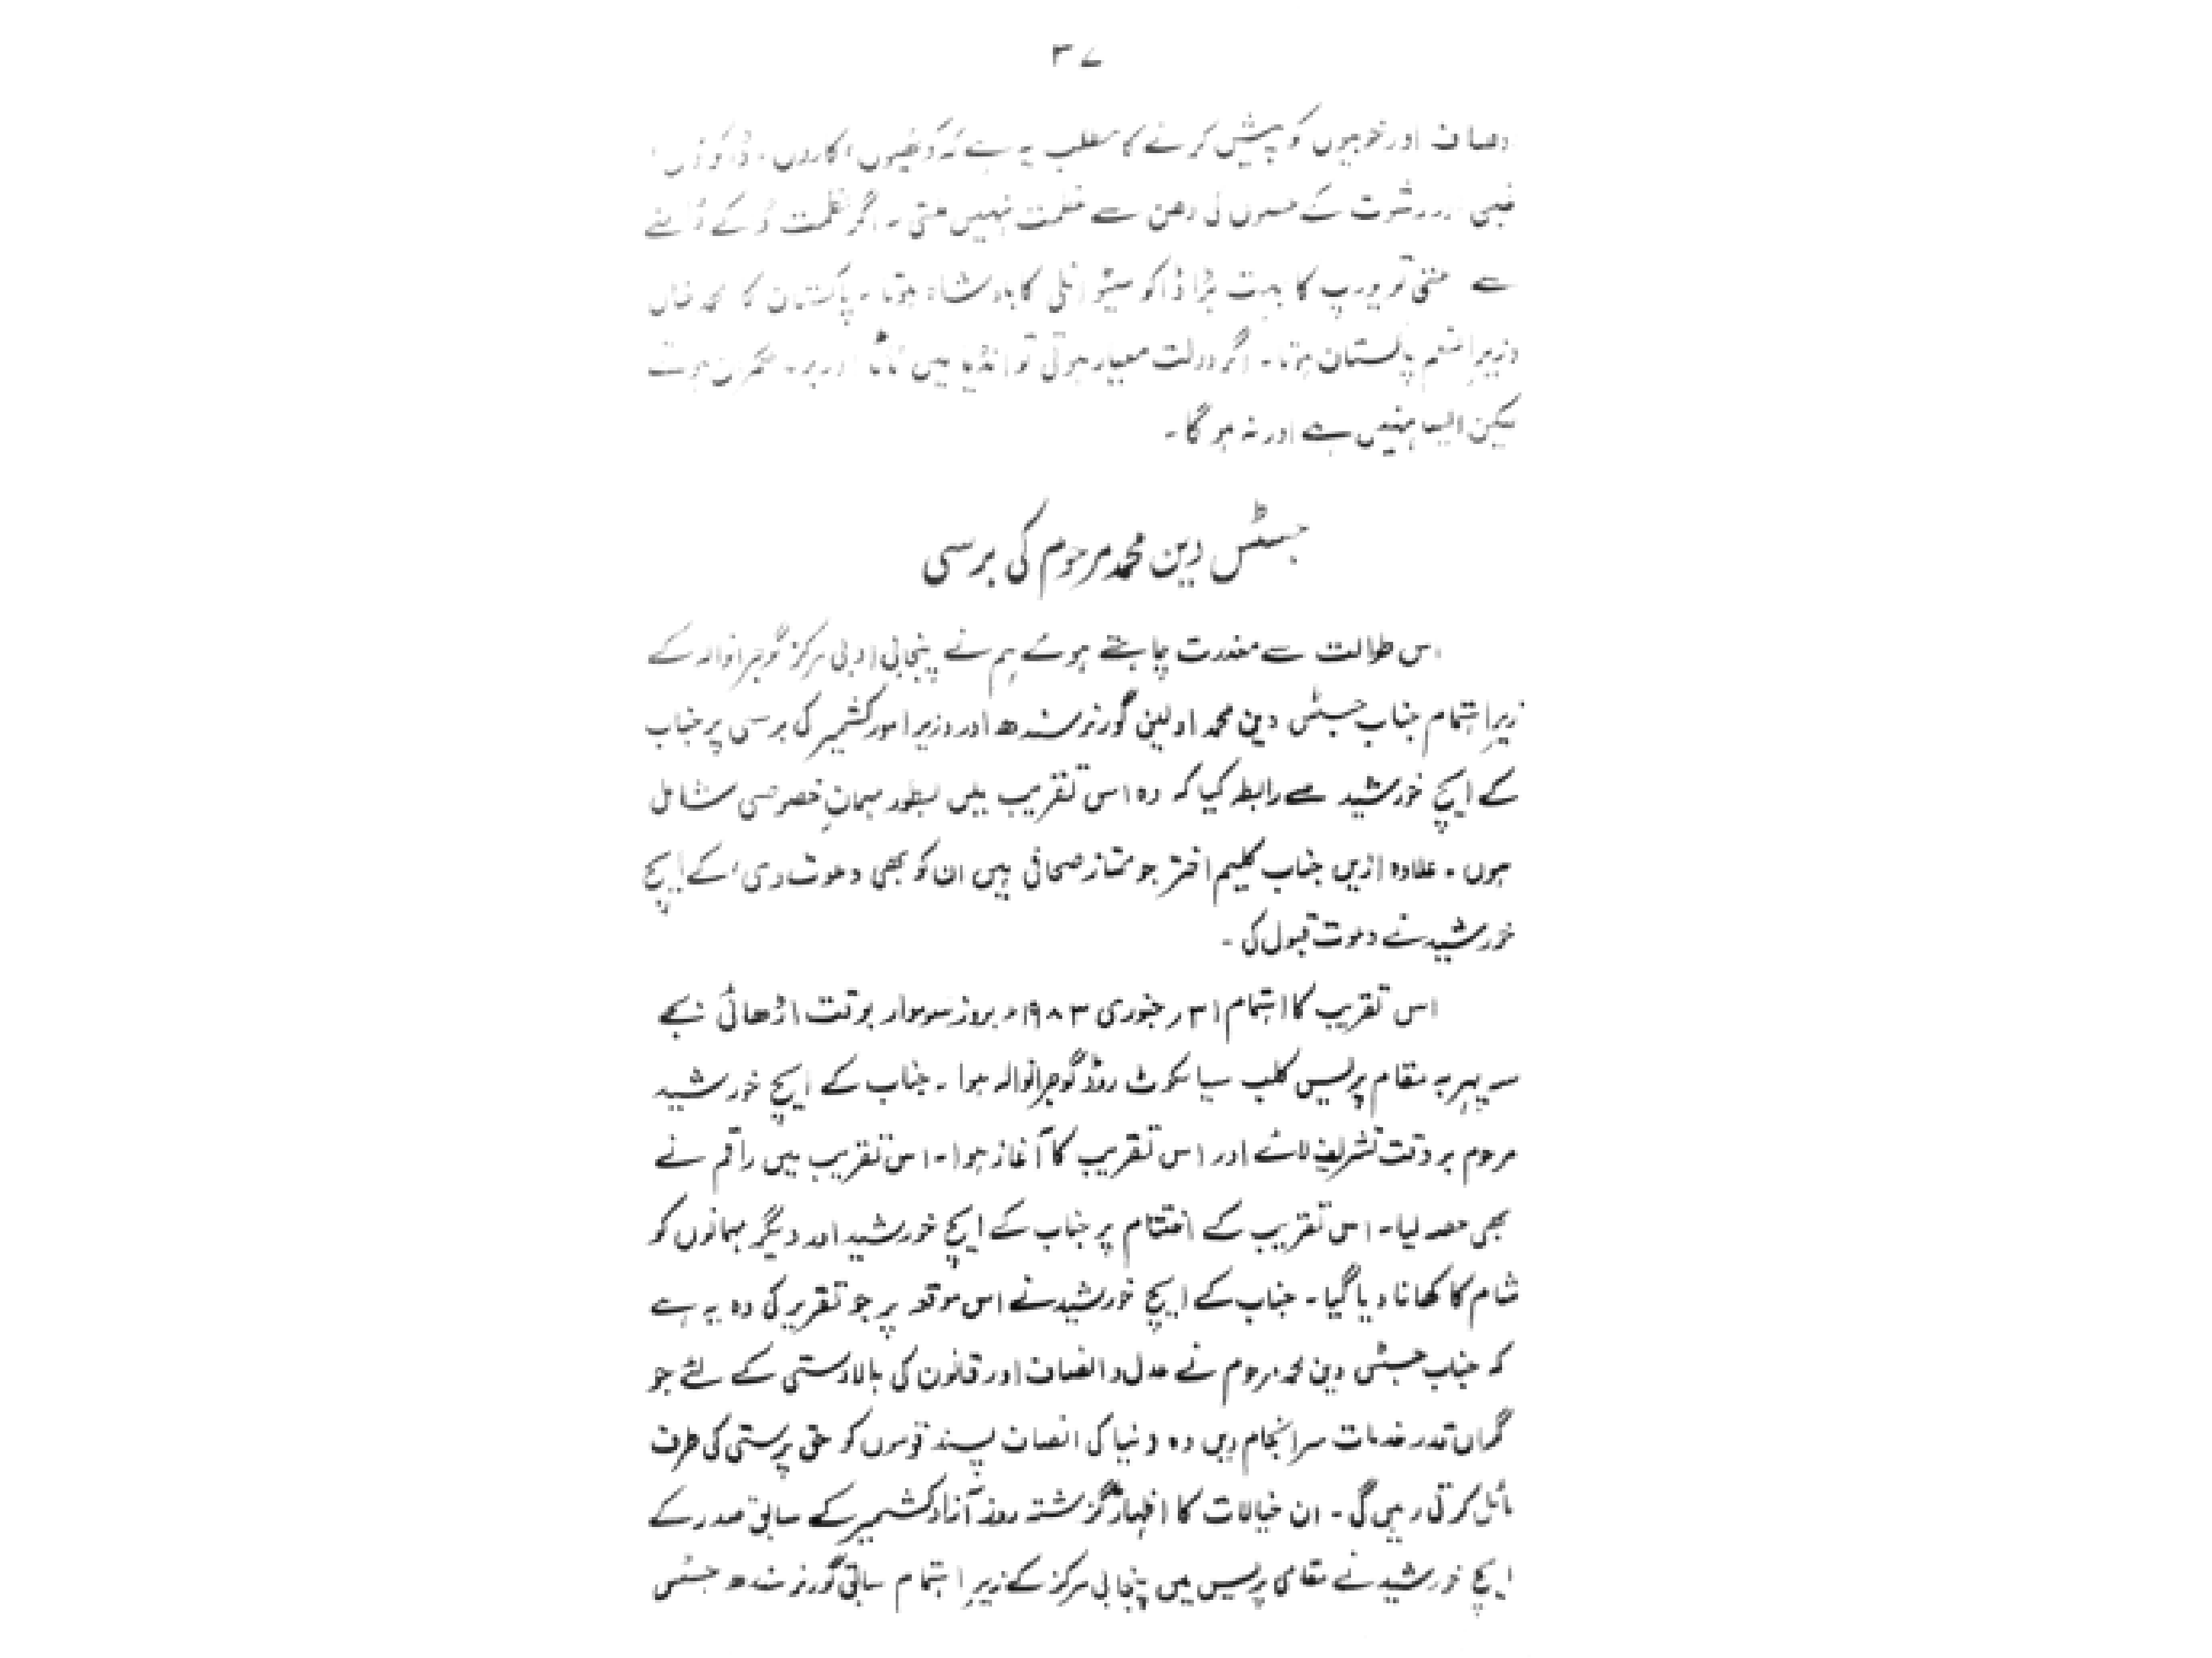 ۳۷
اوصاف اور خوبیوں کو پیش کرنے کا مطلب یہ ہے کہ کوٹھیوں، کاروں،
اور رشوت کے سے عظمت نہیں ملتی۔ اگر عظمت ڈاکے ڈالنے
سے ملتی تو یورپ کا بہت بڑا ڈاکو اٹلی کا بادشاہ ہوتا۔ پاکستان کا محمد خاں
وزیراعظم پاکستان ہوتا۔ اگر دولت معیار ہوتی تو انڈیا میں ٹاٹا اور برلا حکمران ہوتے
لیکن ایسا نہیں ہے اور نہ ہو گا۔
جسٹس دین محمد مرحوم کی برسی
اس طوالت سے معذرت چاہتے ہوئے ہم نے پنجابی ادبی مرکز گوجرانوالہ کے
زیر اہتمام جناب جسٹس دین محمد اولین گورنر سندھ اور وزیر امور کشمیر کی برسی پر جناب
کے ایچ خورشید سے رابطہ کیا کہ وہ اس تقریب میں بطور مہمانِ خصوصی شامل
ہوں۔ علاوہ ازیں جناب کلیم اختر جو ممتاز صحافی ہیں ان کو بھی دعوت دی، کے ایچ
خورشید نے دعوت قبول کی۔
اس تقریب کا اہتمام ۳۱ر جنوری ۱۹۸۳ء بروز سوموار بوقت اڑھائی بجے
سہ پہر بہ مقام پریس کلب سیالکوٹ روڈ گوجرانوالہ ہوا۔ جناب کے ایچ خورشید
مرحوم بر وقت تشریف لائے اور اس تقریب کا آغاز ہوا۔ اس تقریب میں راقم نے
بھی حصہ لیا۔ اس تقریب کے اختتام پر جناب کے ایچ خورشید اور دیگر مہمانوں کو
شام کا کھانا دیا گیا۔ جناب کے ایچ خورشید نے اس موقعہ پر جو تقریر کی وہ یہ ہے
کہ جناب جسٹس دین محمد مرحوم نے عدل و انصاف اور قانون کی بالادستی کے لئے جو
گراں قدر خدمات سرانجام دیں وہ دنیا کی انصاف پسند قوموں کو حق پرستی کی طرف
مائل کرتی رہیں گی۔ ان خیالات کا اظہار گزشتہ روز آزاد کشمیر کے سابق صدر کے
ایچ خورشید نے مقامی پریس میں پنجابی مرکز کے زیر اہتمام سابق گورنر سندھ جسٹس